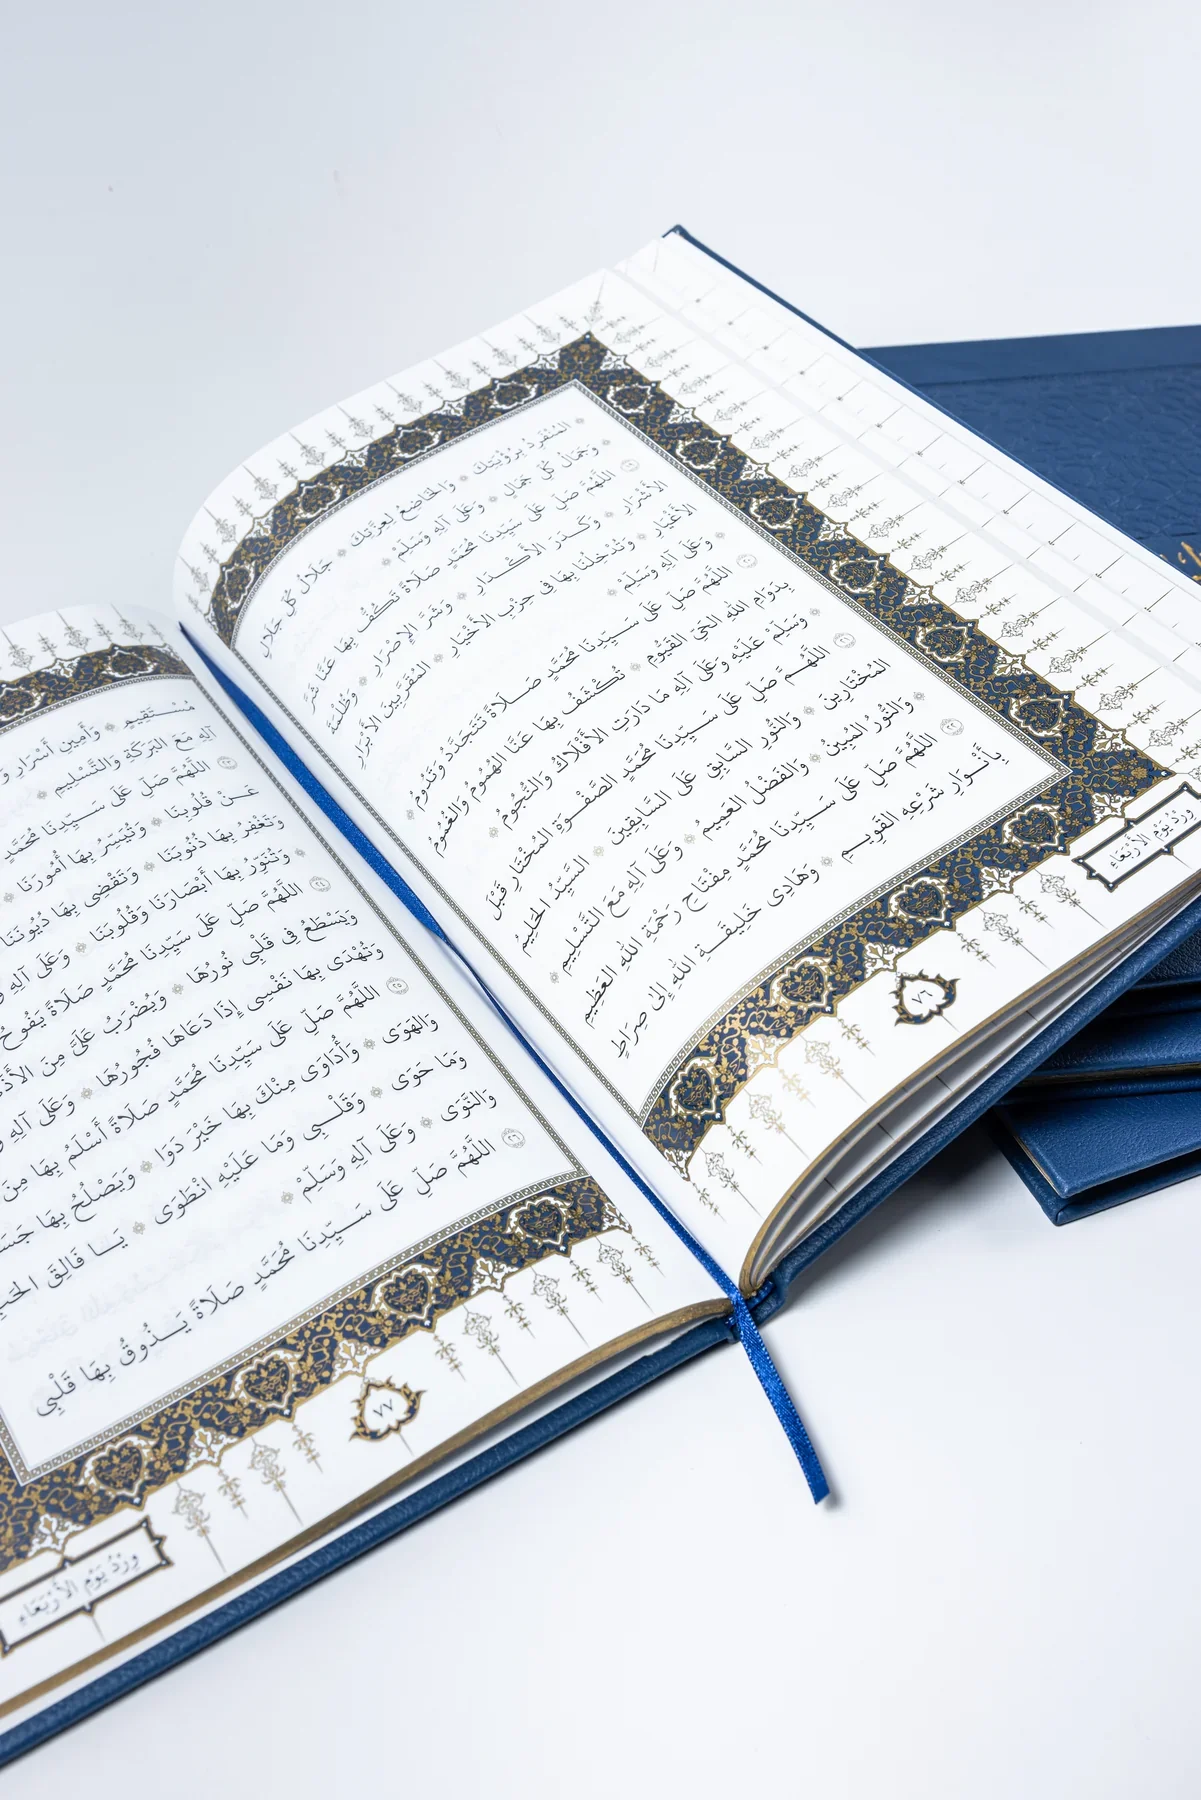 المُنْفَرِدُ بِرُؤْيَتِكَ ۞ وَالخَاضِعُ لِعِزَّتِكَ ۞ جَلَالُ كُلِّ جَلَالٍ
۞ وَجَمَالُ كُلِّ جَمَالٍ ۞ وَعَلَى آلِهِ وَسَلِّمْ ۞
١٩ اللَّهُمَّ صَلِّ عَلَى سَيِّدِنَا مُحَمَّدٍ صَلَاةً تَكُفُّ بِهَا عَنَّا شَرَّ
الأَشْرَارِ ۞ وَكَدَرَ الأَكْدَارِ ۞ وَشَرَّ الإِصْرَارِ ۞ وَظُلْمَةَ
الأَغْيَارِ ۞ وَتُدْخِلُنَا بِهَا فِي حِزْبِ الأَخْيَارِ ۞ المُقَرَّبِينَ الأَبْرَارِ
۞ وَعَلَى آلِهِ وَسَلِّمْ ۞
٢٠ اللَّهُمَّ صَلِّ عَلَى سَيِّدِنَا مُحَمَّدٍ صَلَاةً تَتَجَدَّدُ وَتَدُومُ ۞
بِدَوَامِ اللهِ الحَيِّ القَيُّومِ ۞ تُكْشَفُ بِهَا عَنَّا الهُمُومُ وَالغُمُومُ
۞ وَسَلِّمْ عَلَيْهِ وَعَلَى آلِهِ مَا دَارَتِ الأَفْلَاكُ وَالنُّجُومُ ۞
٢١ اللَّهُمَّ صَلِّ عَلَى سَيِّدِنَا مُحَمَّدٍ الصَّفْوَةِ المُخْتَارِ قَبْلَ
المُخْتَارِينَ ۞ وَالنُّورِ السَّابِقِ عَلَى السَّابِقِينَ ۞ السَّيِّدُ الحَلِيمُ
۞ وَالنُّورُ المُبِينُ ۞ وَالفَضْلُ العَمِيمُ ۞ وَعَلَى آلِهِ مَعَ التَّسْلِيمِ ۞
٢٢ اللَّهُمَّ صَلِّ عَلَى سَيِّدِنَا مُحَمَّدٍ مِفْتَاحِ رَحْمَةِ اللهِ العَظِيمِ
بِأَنْوَارِ شَرْعِهِ القَوِيمِ ۞ وَهَادِي خَلِيقَةِ اللهِ إِلَى صِرَاطٍ
وِرْدُ يَوْمِ الأَرْبَعَاءِ
٧٦
مُسْتَقِيمٍ ۞ وَأَمِينِ أَسْرَارِ
آلِهِ مَعَ البَرَكَةِ وَالتَّسْلِيمِ ۞
٢٣ اللَّهُمَّ صَلِّ عَلَى سَيِّدِنَا مُحَمَّدٍ
عَنْ قُلُوبِنَا ۞ وَتُيَسِّرُ بِهَا أُمُورَنَا ۞
وَتَغْفِرُ بِهَا ذُنُوبَنَا ۞ وَتَقْضِي بِهَا دُيُونَنَا
۞ وَتُنَوِّرُ بِهَا أَبْصَارَنَا وَقُلُوبَنَا ۞ وَعَلَى آلِهِ
٢٤ اللَّهُمَّ صَلِّ عَلَى سَيِّدِنَا مُحَمَّدٍ صَلَاةً يَفُوحُ
وَيَسْطَعُ فِي قَلْبِي نُورُهَا ۞ وَيُضْرَبُ عَلَيَّ مِنَ
وَتُهْدَى بِهَا نَفْسِي إِذَا دَعَاهَا فُجُورُهَا ۞ وَعَلَى آلِهِ
٢٥ اللَّهُمَّ صَلِّ عَلَى سَيِّدِنَا مُحَمَّدٍ صَلَاةً أَسْلَمُ بِهَا مِنَ
وَالهَوَى ۞ وَأُدَاوَى مِنْكَ بِهَا خَيْرَ دَوَا ۞ وَيَصْلُحُ بِهَا
وَمَا حَوَى ۞ وَقَلْبِي وَمَا عَلَيْهِ انْطَوَى ۞ يَا فَالِقَ الحَبِّ
وَالنَّوَى ۞ وَعَلَى آلِهِ وَسَلِّمْ ۞
٢٦ اللَّهُمَّ صَلِّ عَلَى سَيِّدِنَا مُحَمَّدٍ صَلَاةً يَذُوقُ بِهَا قَلْبِي
٧٧
وِرْدُ يَوْمِ الأَرْبَعَاءِ